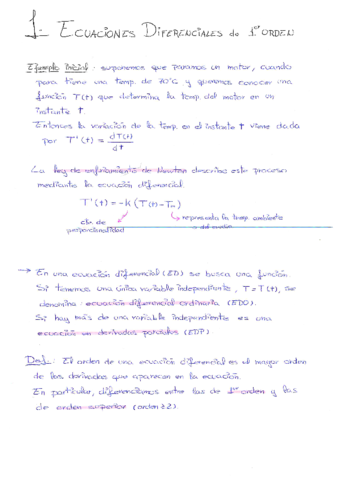 1- ECUACIONES DIFERENCIALES de 1er ORDEN
Ejemplo Inicial: suponemos que paramos un motor, cuando
para tiene una temp. de 70°C y queremos conocer una
función T(t) que determina la temp. del motor en un
instante t.
Entonces la variación de la temp. en el instante t viene dada
por T'(t) = dT(t)/dt
La ley de enfriamiento de Newton describe este proceso
mediante la ecuación diferencial
T'(t) = -k (T(t) - Tm)
cte. de proporcionalidad
representa la temp. ambiente
del motor
→ En una ecuación diferencial (ED) se busca una función.
Si tenemos una única variable independiente, T = T(t), se
denomina ecuación diferencial ordinaria (EDO).
Si hay más de una variable independiente es una
ecuación en derivadas parciales (EDP).
Def.: El orden de una ecuación diferencial es el mayor orden
de las derivadas que aparecen en la ecuación.
En particular, diferenciamos entre las de 1er orden y las
de orden superior (orden ≥2).